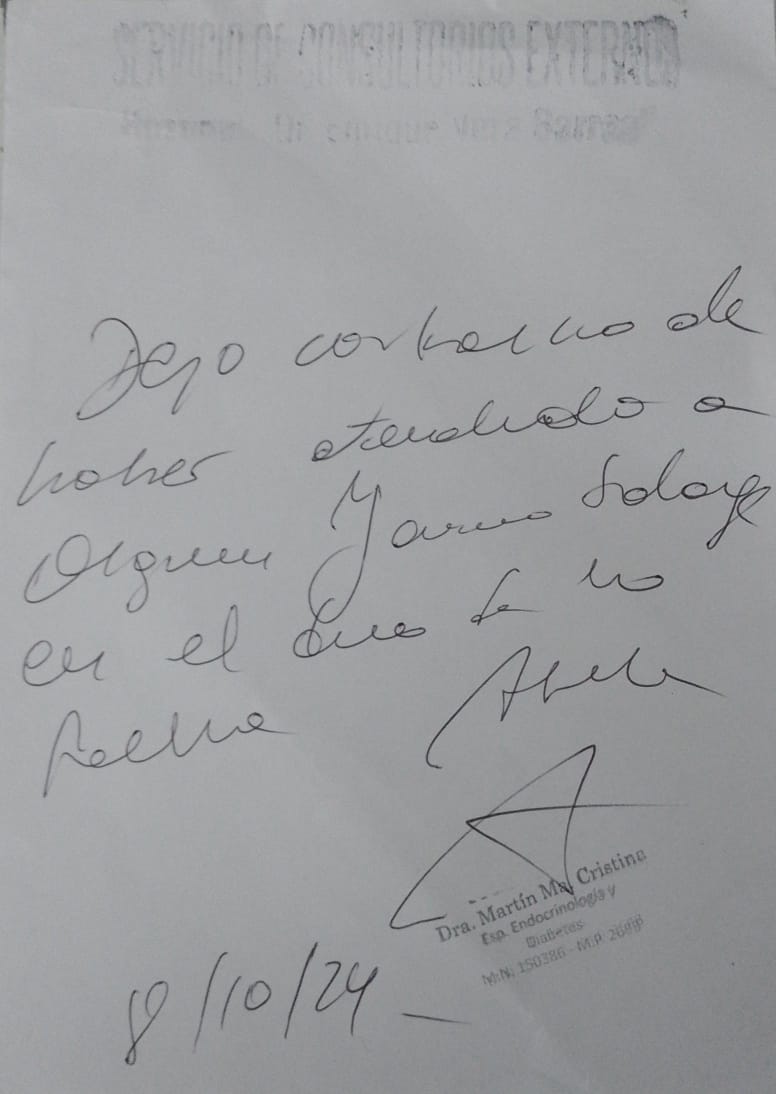 SERVICIO DE CONSULTORIOS EXTERNOS
Hospital Dr. Enrique Vera Barros
Dejo constancia de
haber atendido a
Olguin
en el día de la
fecha
Dra. Martín Ma. Cristina
Esp. Endocrinología y
Diabetes
M.N. 150386 - M.P.
8/10/24